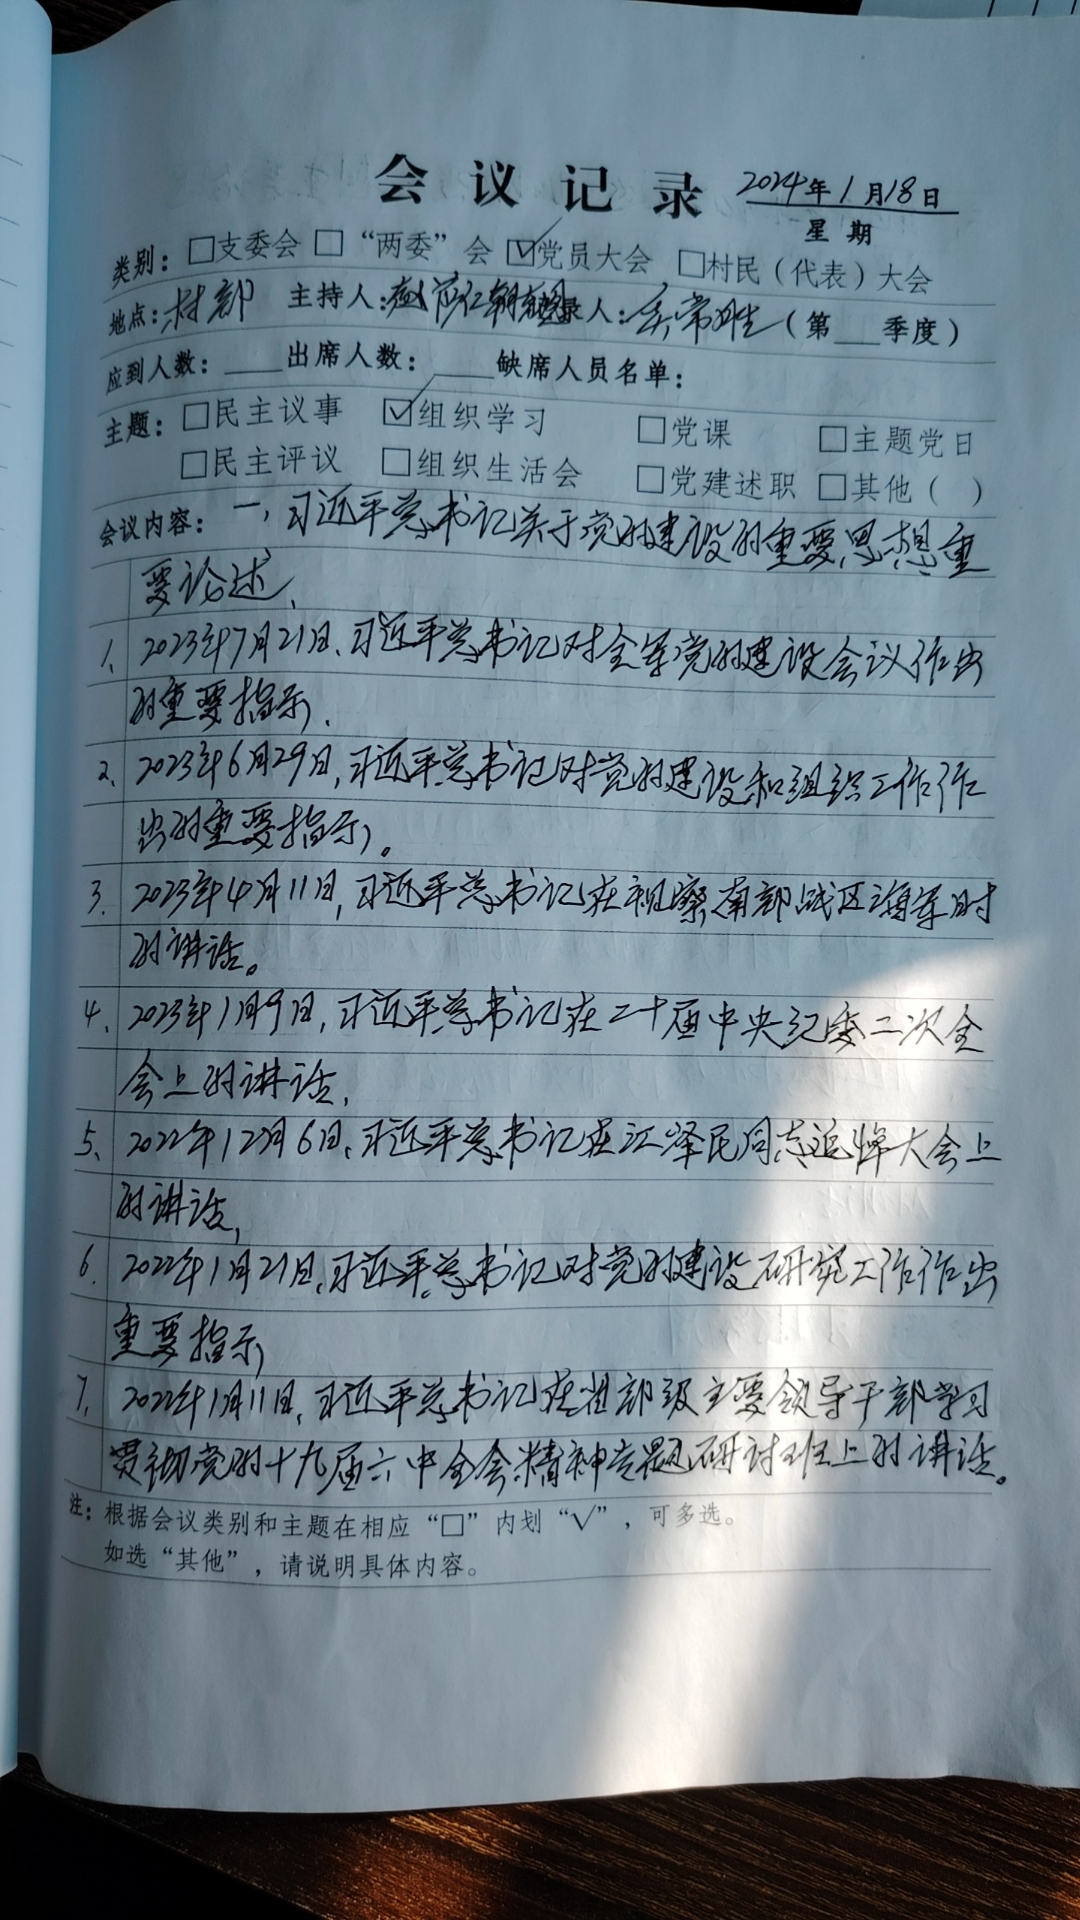 会 议 记 录 2024年1月18日
星 期
类别：□支委会 □“两委”会 ☑党员大会 □村民（代表）大会
地点：村部 主持人： 录人： （第 季度）
应到人数： 出席人数： 缺席人员名单：
主题：□民主议事 ☑组织学习 □党课 □主题党日
□民主评议 □组织生活会 □党建述职 □其他（ ）
会议内容：一，习近平总书记关于党的建设的重要思想重
要论述、
1、2023年7月21日、习近平总书记对全军党的建设会议作出
的重要指示、
2、2023年6月29日，习近平总书记对党的建设和组织工作作
出的重要指示。
3. 2023年4月11日，习近平总书记在视察南部战区海军时
的讲话。
4、2023年1月9日，习近平总书记在二十届中央纪委二次全
会上的讲话，
5、2022年12月6日、习近平总书记在江泽民同志追悼大会上
的讲话，
6. 2022年1月21日，习近平总书记对党的建设研究工作作出
重要指示，
7. 2022年1月11日，习近平总书记在省部级主要领导干部学习
贯彻党的十九届六中全会精神专题研讨班上的讲话。
注：根据会议类别和主题在相应“□”内划“√”，可多选。
如选“其他”，请说明具体内容。